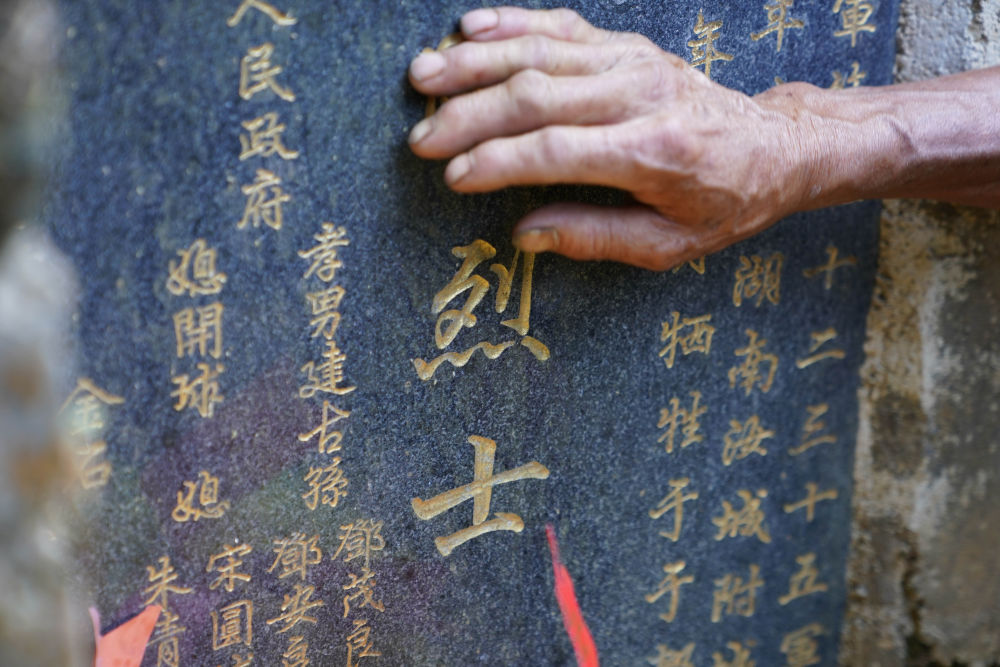 軍
十二三十五軍
湖南汝城附城
年
牺牲于于
烈士
孝男建古孫鄧茂良
鄧安良
人民政府
媳開球媳宋圓
朱青